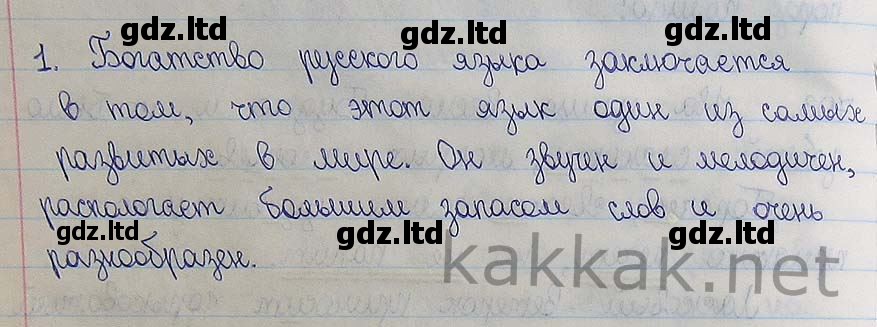 gdz.ltd gdz.ltd gdz.ltd
1. Богатство русского языка заключается
в том, что этот язык один из самых
развитых в мире. Он звучен и мелодичен,
распологает большим запасом слов и очень
gdz.ltd gdz.ltd gdz.ltd
разнообразен.
kakkak.net